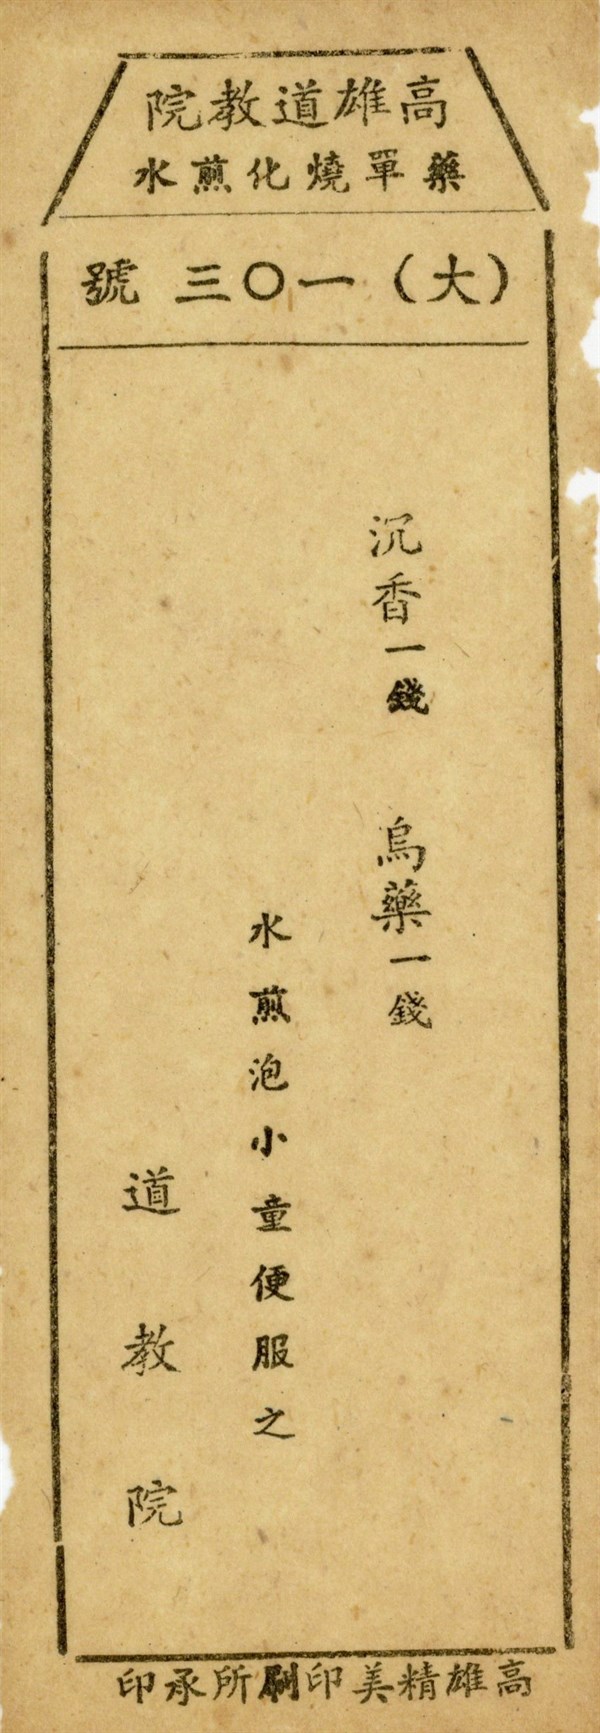 高雄道教院
藥單燒化煎水
（大）一〇三 號
沉香一錢 烏藥一錢
水煎泡小童便服之
道教院
高雄精美印刷所承印